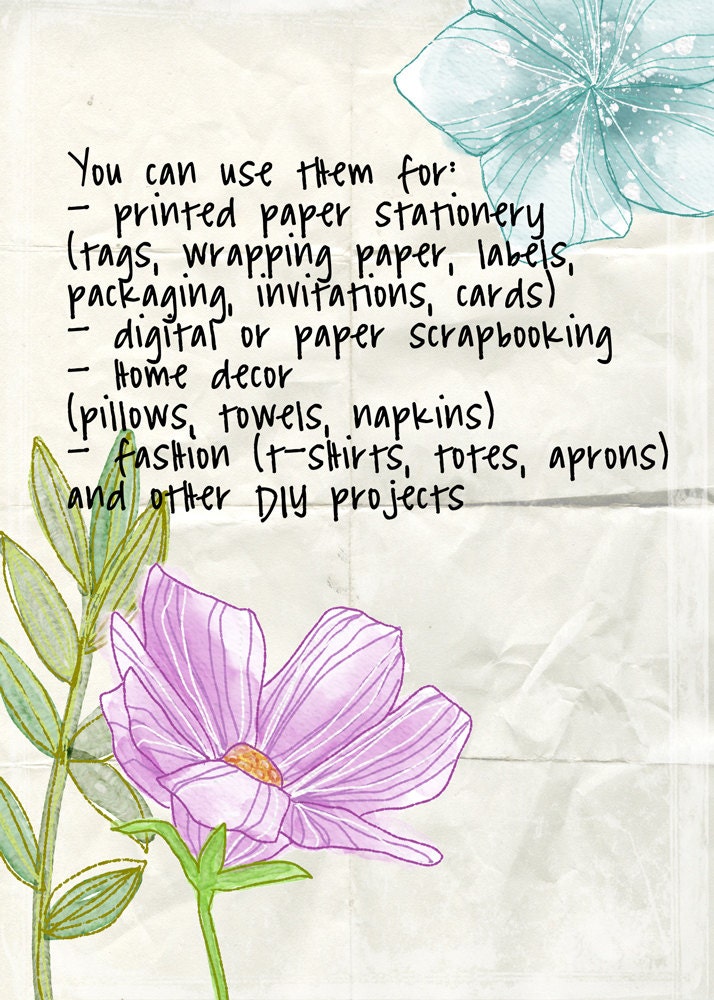 You can use them for:
- printed paper stationery
(tags, wrapping paper, labels,
packaging, invitations, cards)
- digital or paper scrapbooking
- Home decor
(pillows, towels, napkins)
- fashion (t-shirts, totes, aprons)
and other DIY projects